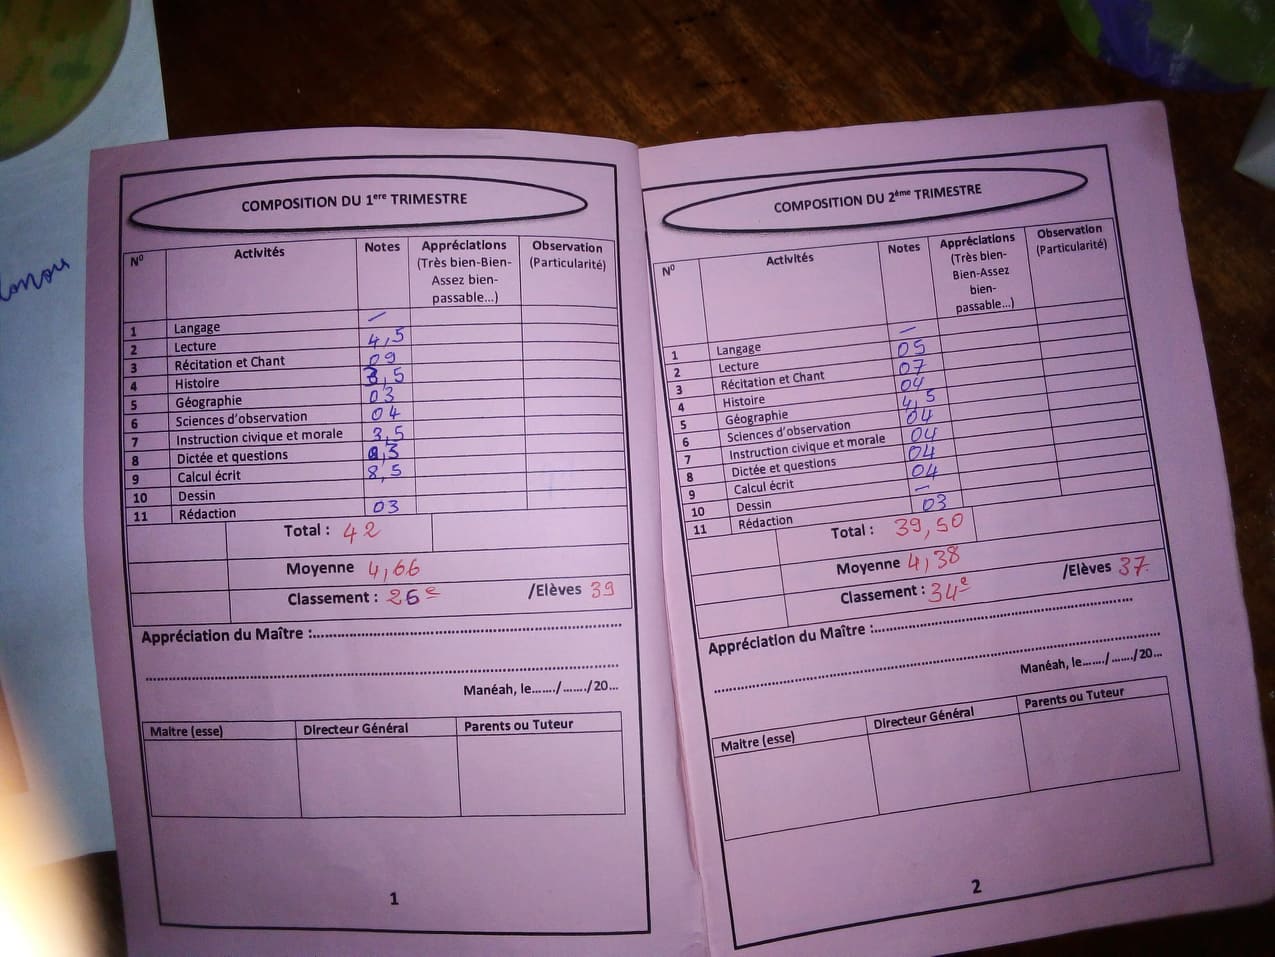 COMPOSITION DU 1ere TRIMESTRE
N° Activités Notes Appréciations (Très bien-Bien-Assez bien-passable...) Observation (Particularité)
1 Langage —
2 Lecture 4,5
3 Récitation et Chant 09
4 Histoire 3,5
5 Géographie 03
6 Sciences d'observation 04
7 Instruction civique et morale 3,5
8 Dictée et questions
9 Calcul écrit 8,5
10 Dessin
11 Rédaction 03
Total : 42
Moyenne 4,66
Classement : 26e /Elèves 39
Appréciation du Maître :
Manéah, le......./......./20...
Maitre (esse) Directeur Général Parents ou Tuteur
1
COMPOSITION DU 2ème TRIMESTRE
N° Activités Notes Appréciations (Très bien-Bien-Assez bien-passable...) Observation (Particularité)
1 Langage —
2 Lecture 05
3 Récitation et Chant 07
4 Histoire 04
5 Géographie 4,5
6 Sciences d'observation 04
7 Instruction civique et morale 04
8 Dictée et questions 04
9 Calcul écrit 04
10 Dessin —
11 Rédaction 03
Total : 39,50
Moyenne 4,38
Classement : 34e /Elèves 37
Appréciation du Maître :
Manéah, le......./......./20...
Maitre (esse) Directeur Général Parents ou Tuteur
2